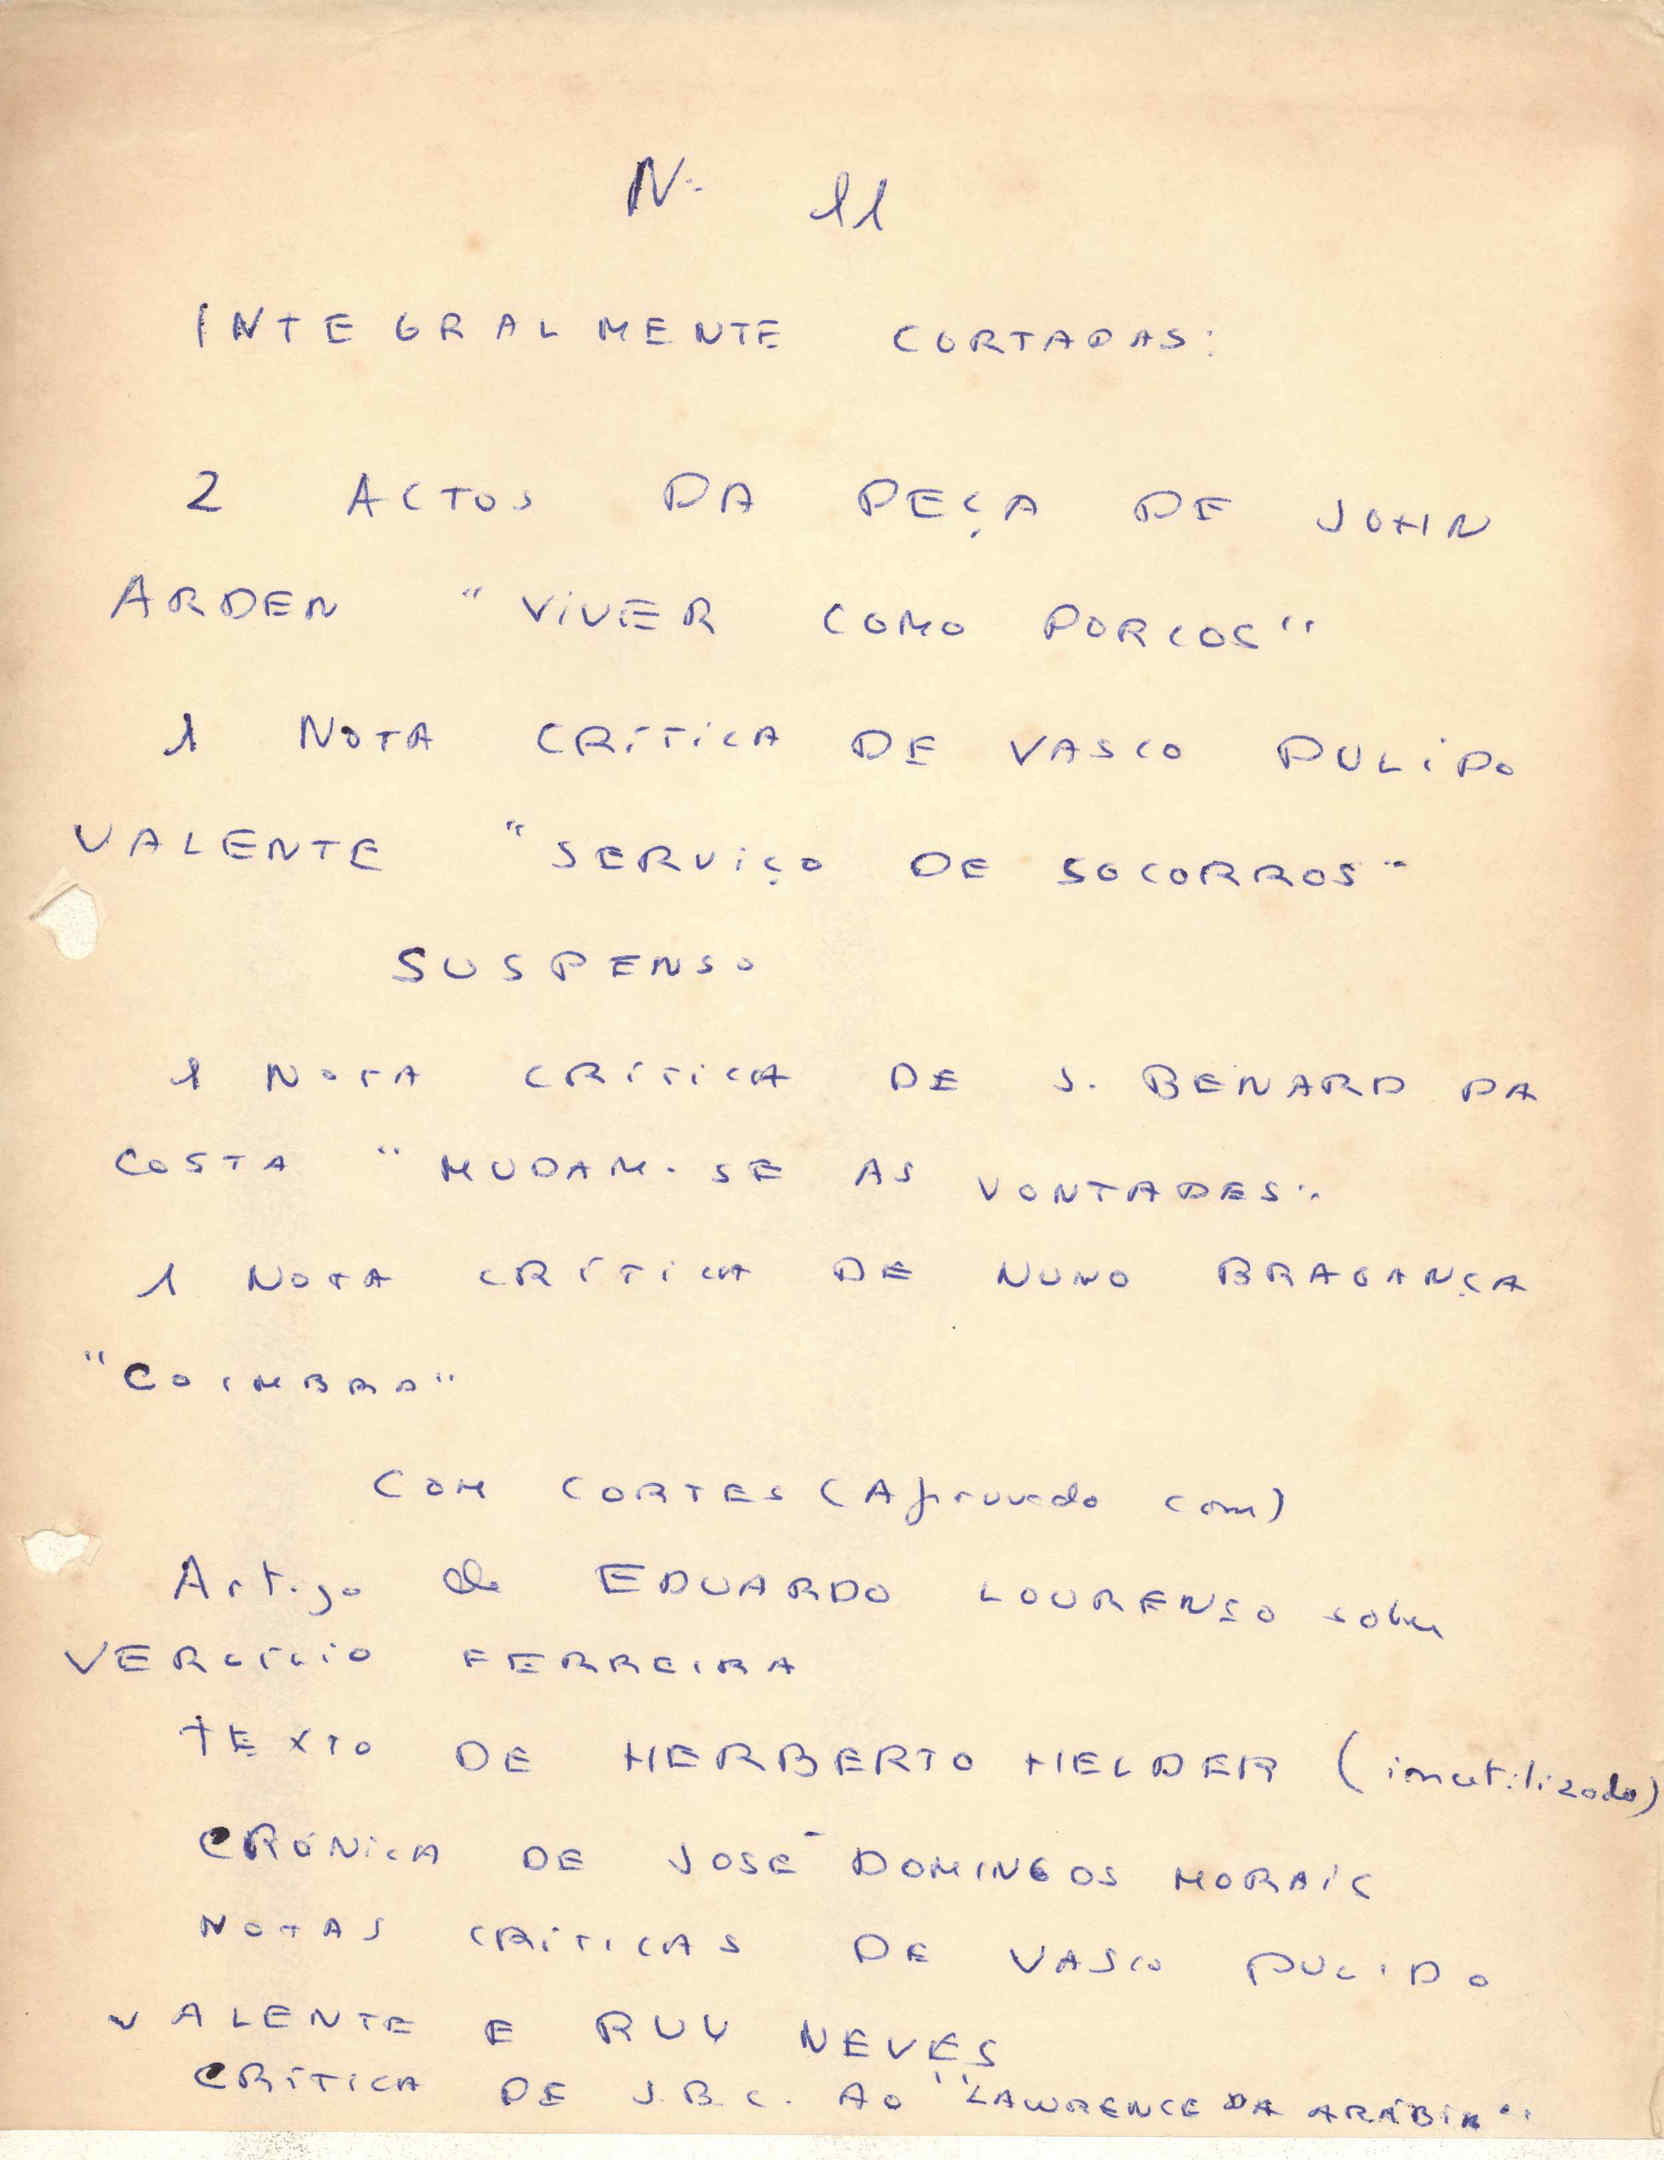 Nº 11
INTEGRALMENTE CORTADAS:
2 ACTOS DA PEÇA DE JOHN
ARDEN "VIVER COMO PORCOS"
1 NOTA CRÍTICA DE VASCO PULIDO
VALENTE "SERVIÇO DE SOCORROS"
SUSPENSO
1 NOTA CRÍTICA DE J. BENARD DA
COSTA "MUDAM-SE AS VONTADES"
1 NOTA CRÍTICA DE NUNO BRAGANÇA
"COIMBRA"
COM CORTES (Aprovado com)
Artigo de EDUARDO LOURENSO sobre
VERGÍLIO FERREIRA
TEXTO DE HERBERTO HELDER (inutilizado)
CRÓNICA DE JOSÉ DOMINGOS MORAIS
NOTAS CRÍTICAS DE VASCO PULIDO
VALENTE E RUY NEVES
CRÍTICA DE J.B.C. AO "LAWRENCE DA ARÁBIA"